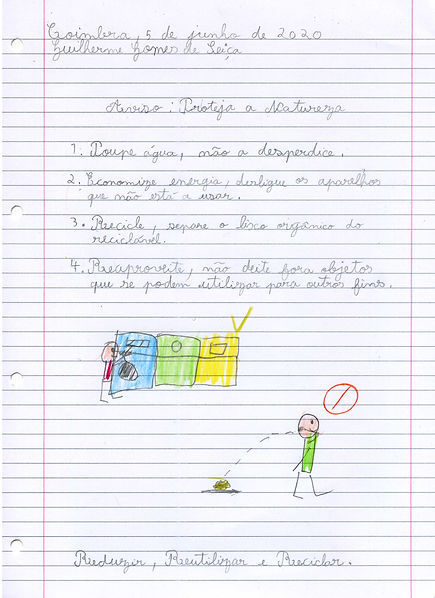 Coimbra, 5 de junho de 2020
Guilherme Gomes de Seiça
Aviso: Proteja a Natureza
1. Poupe água, não a desperdice.
2. Economize energia, desligue os aparelhos
que não está a usar.
3. Recicle, separe o lixo orgânico do
reciclável.
4. Reaproveite, não deite fora objetos
que se podem utilizar para outros fins.
Reduzir, Reutilizar e Reciclar.